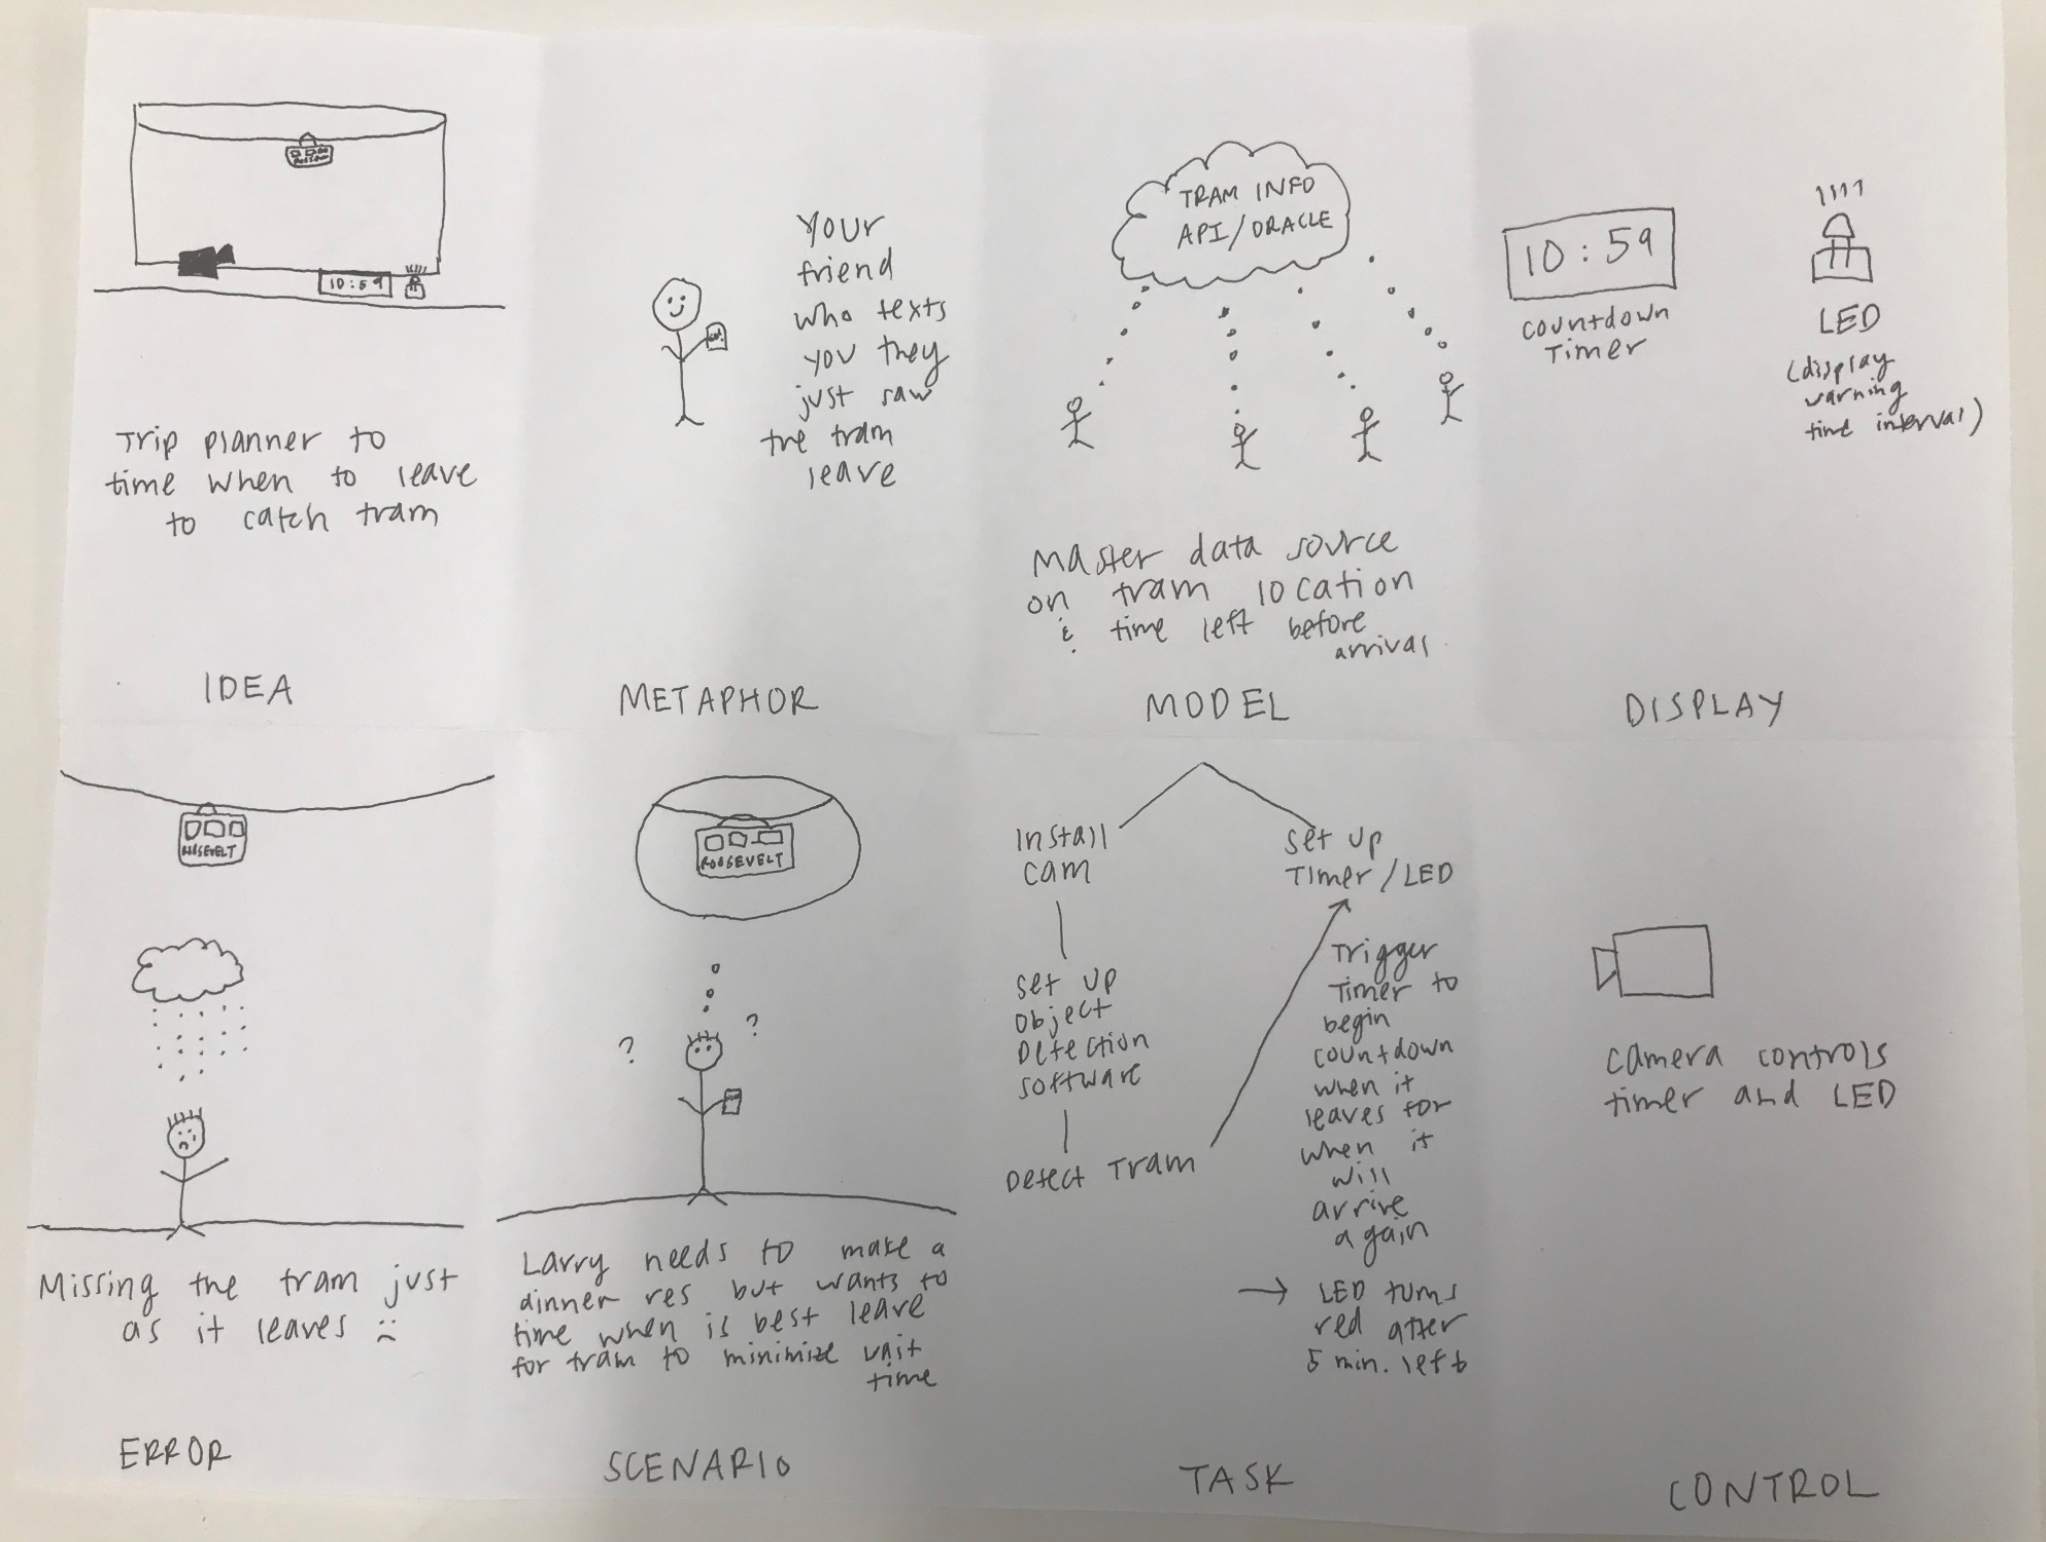 10:59
Trip planner to
time when to leave
to catch tram
IDEA
Your
friend
who texts
you they
just saw
the tram
leave
METAPHOR
TRAM INFO
API/ORACLE
Master data source
on tram location
& time left before
arrival
MODEL
10:59
countdown
Timer
LED
(display
warning
time interval)
DISPLAY
ROOSEVELT
Missing the tram just
as it leaves :(
ERROR
ROOSEVELT
? ?
Larry needs to make a
dinner res but wants to
time when is best leave
for tram to minimize wait
time
SCENARIO
Install
cam
Set up
object
Detection
software
Detect Tram
Set up
Timer/LED
Trigger
Timer to
begin
countdown
when it
leaves for
when it
will
arrive
again
→ LED turns
red after
5 min. left
TASK
Camera controls
timer and LED
CONTROL